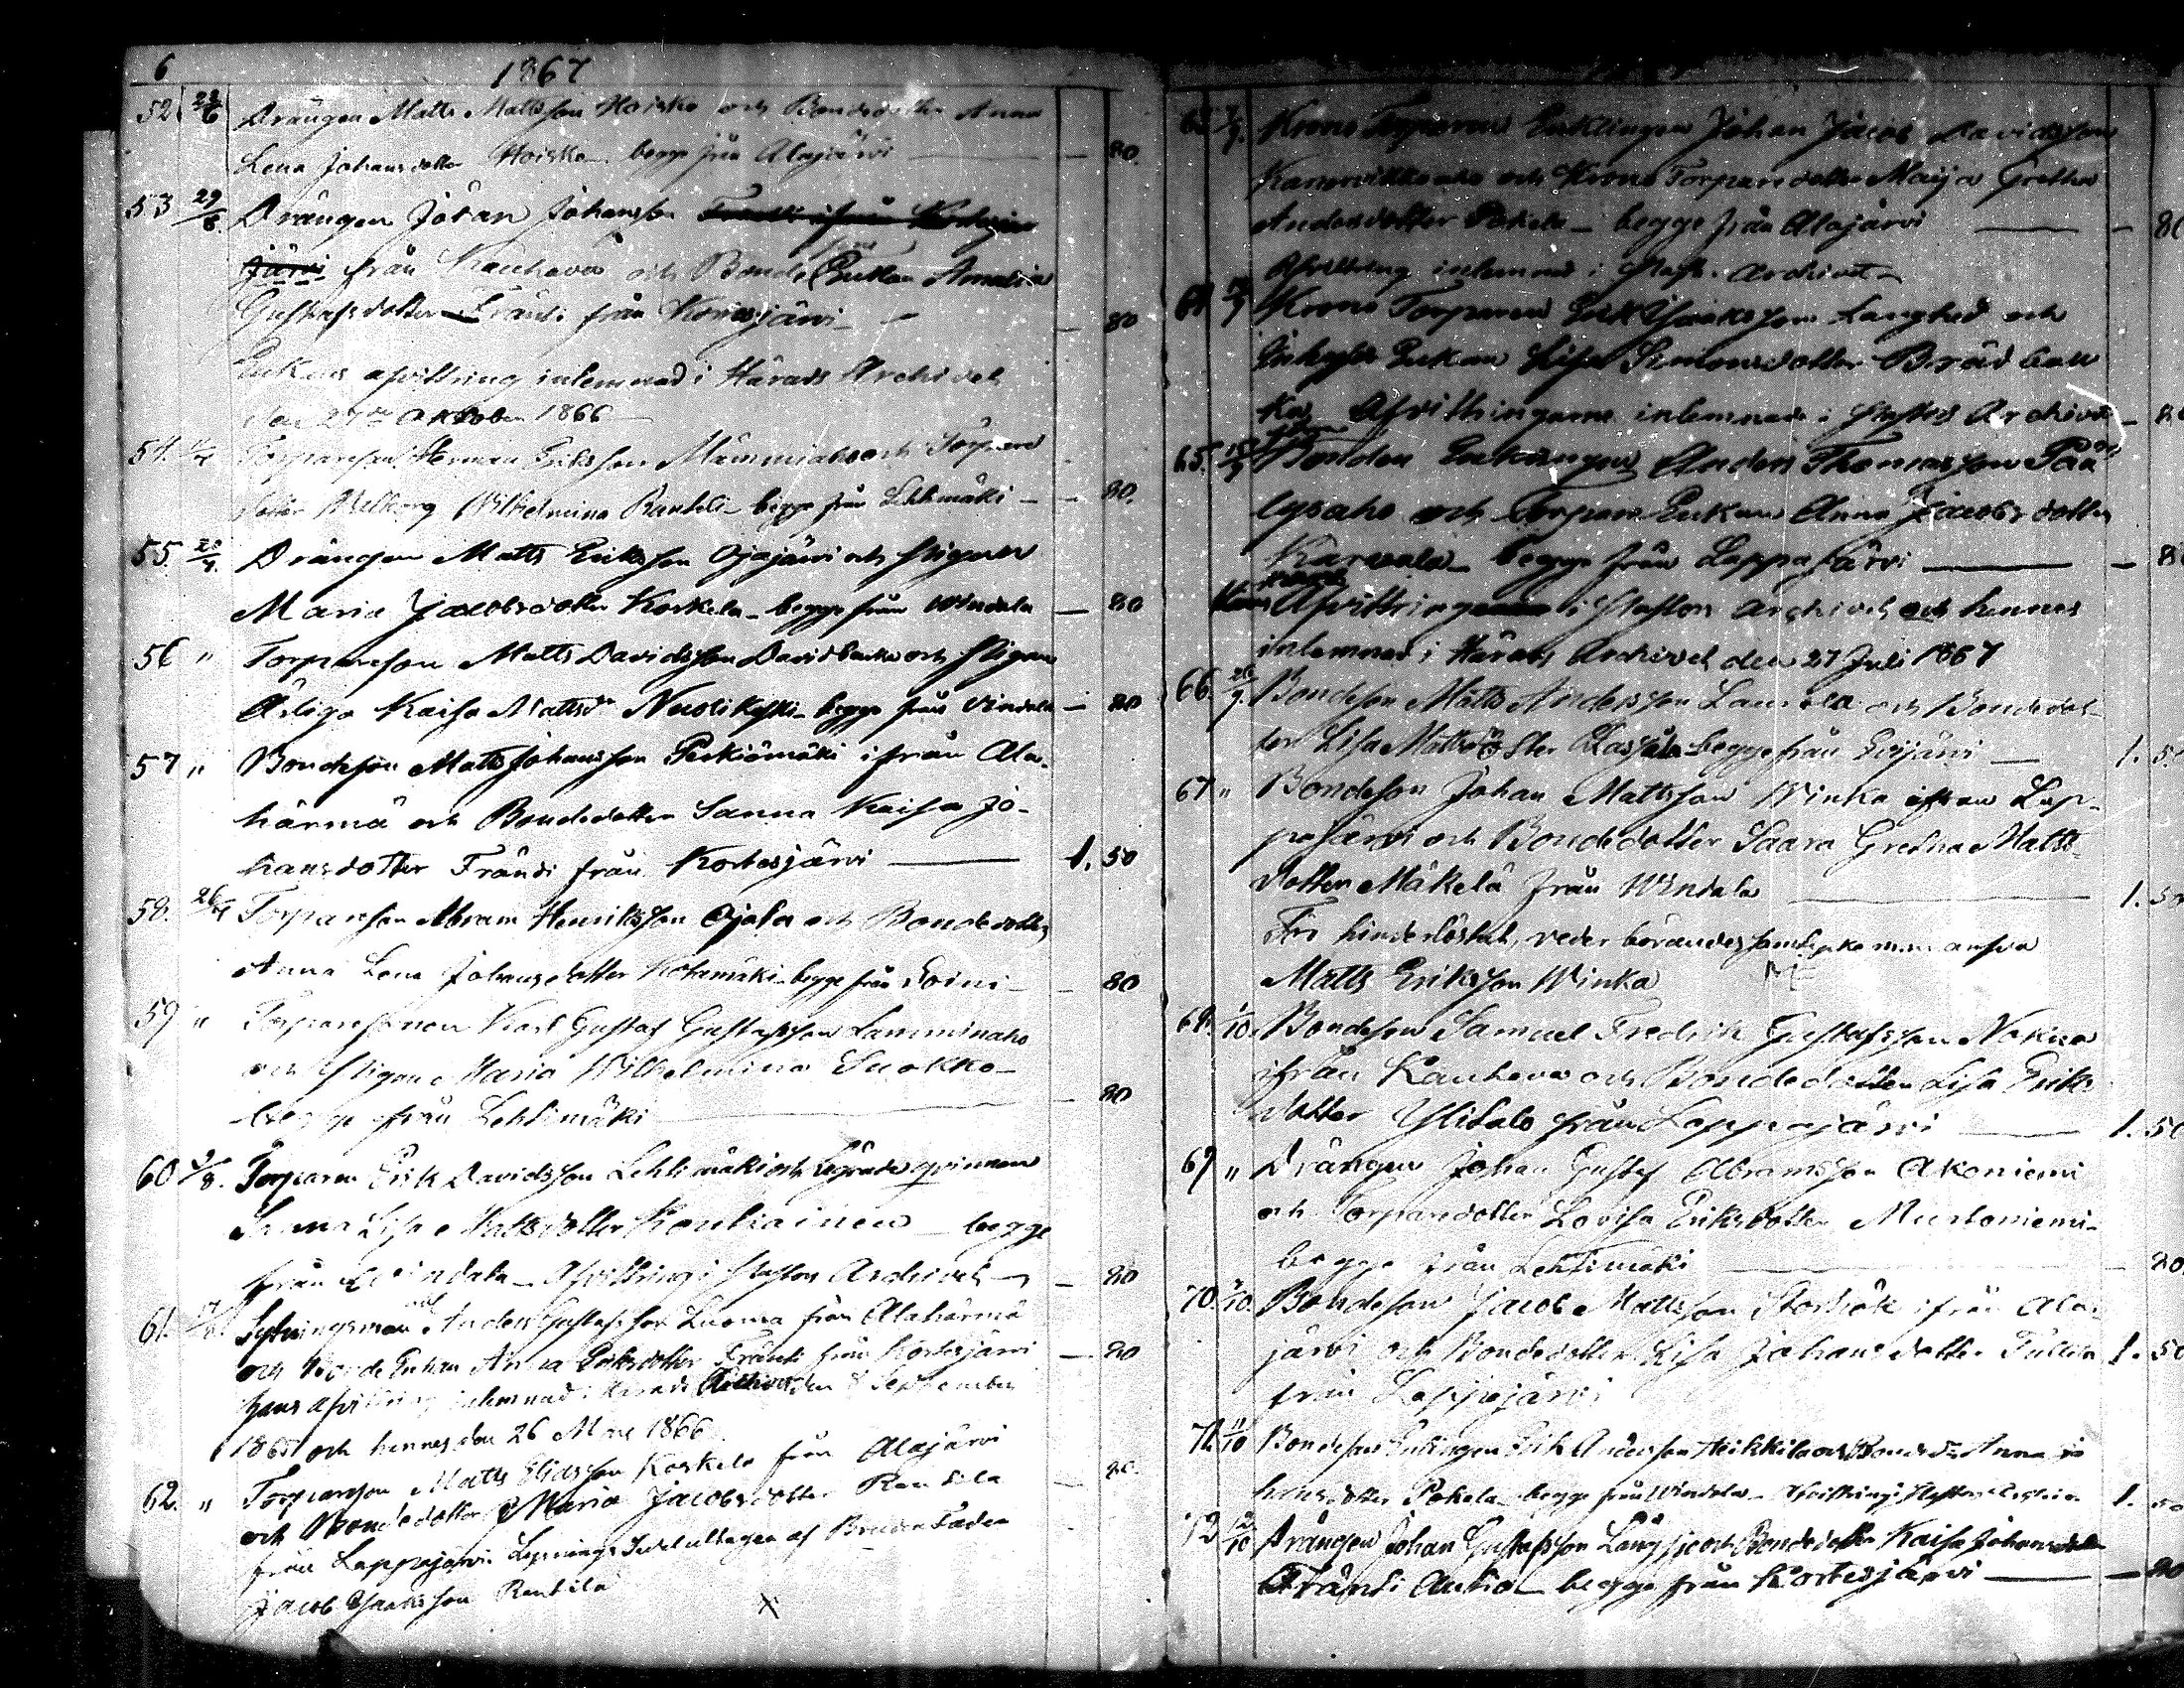 6
1867
52. 23/6 Drängen Matts Mattsson Hoisko och Bondedotter Anna
Lena Johansdotter Hoisko begge från Alajärvi — — 80.
53 29/6. Drängen Johan Johansson
järvi från Kauhava och Bonde Enkan Amalia
Gustafsdotter Frändi från Kortesjärvi — — 80
Enkans afvittring inlemnad i Härads Archivet
den 27de Oktober 1866
54. Torpareson Herman Eriksson Mämmiaho och Torpare
dotter Wilhelmina Rantala begge från Lehtimäki — — 80.
55. 20/7. Drängen Matts Eriksson Ojajärvi och Pigan
Maria Jacobsdotter Koskela — begge från Windala — 80
56 " Torpareson Matts Davidsson Davidbacka och Pigan
Ärliga Kaisa Mattsdr Nuolikoski — begge från Vindala — 80
57 " Bondeson Matts Johansson Perkiömäki ifrån Ala-
härmä och Bondedotter Sanna Kaisa Jo-
hansdotter Frändi från Kortesjärvi — 1. 50
58. 26/7 Torpareson Abram Henriksson Ojala och Bondedotter
Anna Lena Johansdotter Kotamäki begge från Soini — — 80
59 " Torparesonen Karl Gustaf Gustafsson Lamminaho
och Pigan Maria Wilhelmina Suokko —
begge från Lehtimäki — — 80
60 /8. Torparen Erik Davidsson Lehtimäki och Lägrade qvinnan
Sanna Lisa Mattsdotter Koukiainen — begge
från Windala — Afvittring i Pastors Archivet — — 80
61. Sytningsman Anders Gustafsson Luoma från Alahärmä
och Bonde Enkan Anna Eriksdotter Frändi från Kortesjärvi — 80
hans afvittring inlemnad i Härads Archivet den 8 September
1865 och hennes den 26 Maj 1866
62. " Torpareson Matts Eliasson Koskela från Alajärvi — 80.
och Bondedotter Maria Jacobsdotter Rantala
från Lappajärvi Lysnings Sedel uttagen af Brudens Fader
Jacob Isaksson Rantala
X
63 /7. Krono Torparen Enklingen Johan Jacob Davidsson
och Krono Torparedotter Maija Gretha
Andersdotter Pokela — begge från Alajärvi — — 80
Afvittring inlemnad i Past. Archivet —
64 /7 Krono Torparen Erik Isaksson Langhed och
Inhyses Enkan Lisa Simonsdotter
Afvittringarne inlemnade i Pastors Archivet — 80
65. /7 Bonden Enklingen Anders Thomasson Pää-
lysaho och Torpare Enkan Anna Jacobsdotter
Karvala — begge från Lappajärvi — — 80
Hans Afvittring i Pastors Archivet och hennes
inlemnad i Härads Archivet den 27 Juli 1867
66. /9. Bondeson Matts Andersson Laurila och Bondedot-
ter Lisa Mattsdotter — begge från Evijärvi — 1. 50
67 " Bondeson Johan Mattsson Winka ifrån Lap-
pajärvi och Bondedotter Saara Gretha Matts-
dotter Mäkelä från Windala — 1. 50
För hinderlöshet, vederbörandes samtycke m.m. ansvar
Matts Eriksson Winka
68. 1/10. Bondeson Samuel Fredrik Gustafsson Nokua
ifrån Kauhava och Bondedotter Lisa Eriks-
dotter Ylitalo från Lappajärvi — 1. 50
69 " Drängen Johan Gustaf Abramsson Akoniemi
och Torparedotter Lovisa Eriksdotter Mustoniemi —
begge från Lehtimäki — — 80
70. /10. Bondeson Jacob Mattsson ifrån Ala-
järvi och Bondedotter Lisa Johansdotter 1. 50
från Lappajärvi
71. 11/10 Bondeson Enklingen Erik Andersson Heikkilä och Bondedr Anna Jo
hansdotter Pokela — begge från Windala — Afvittring i Pastors Archiv. 1. 50
72 12/10 Drängen Johan Gustafsson Långsjö och Bondedotter Kaisa Johansdotter
Frändi Autio — begge från Kortesjärvi — — 80